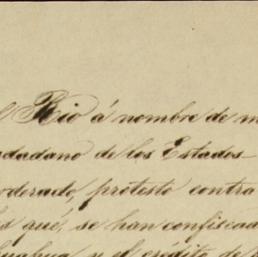 Rio á nombre de m
dadano de los Estados
oderado, protesto contra
s qué, se han confiscad
uahua y el crédito de